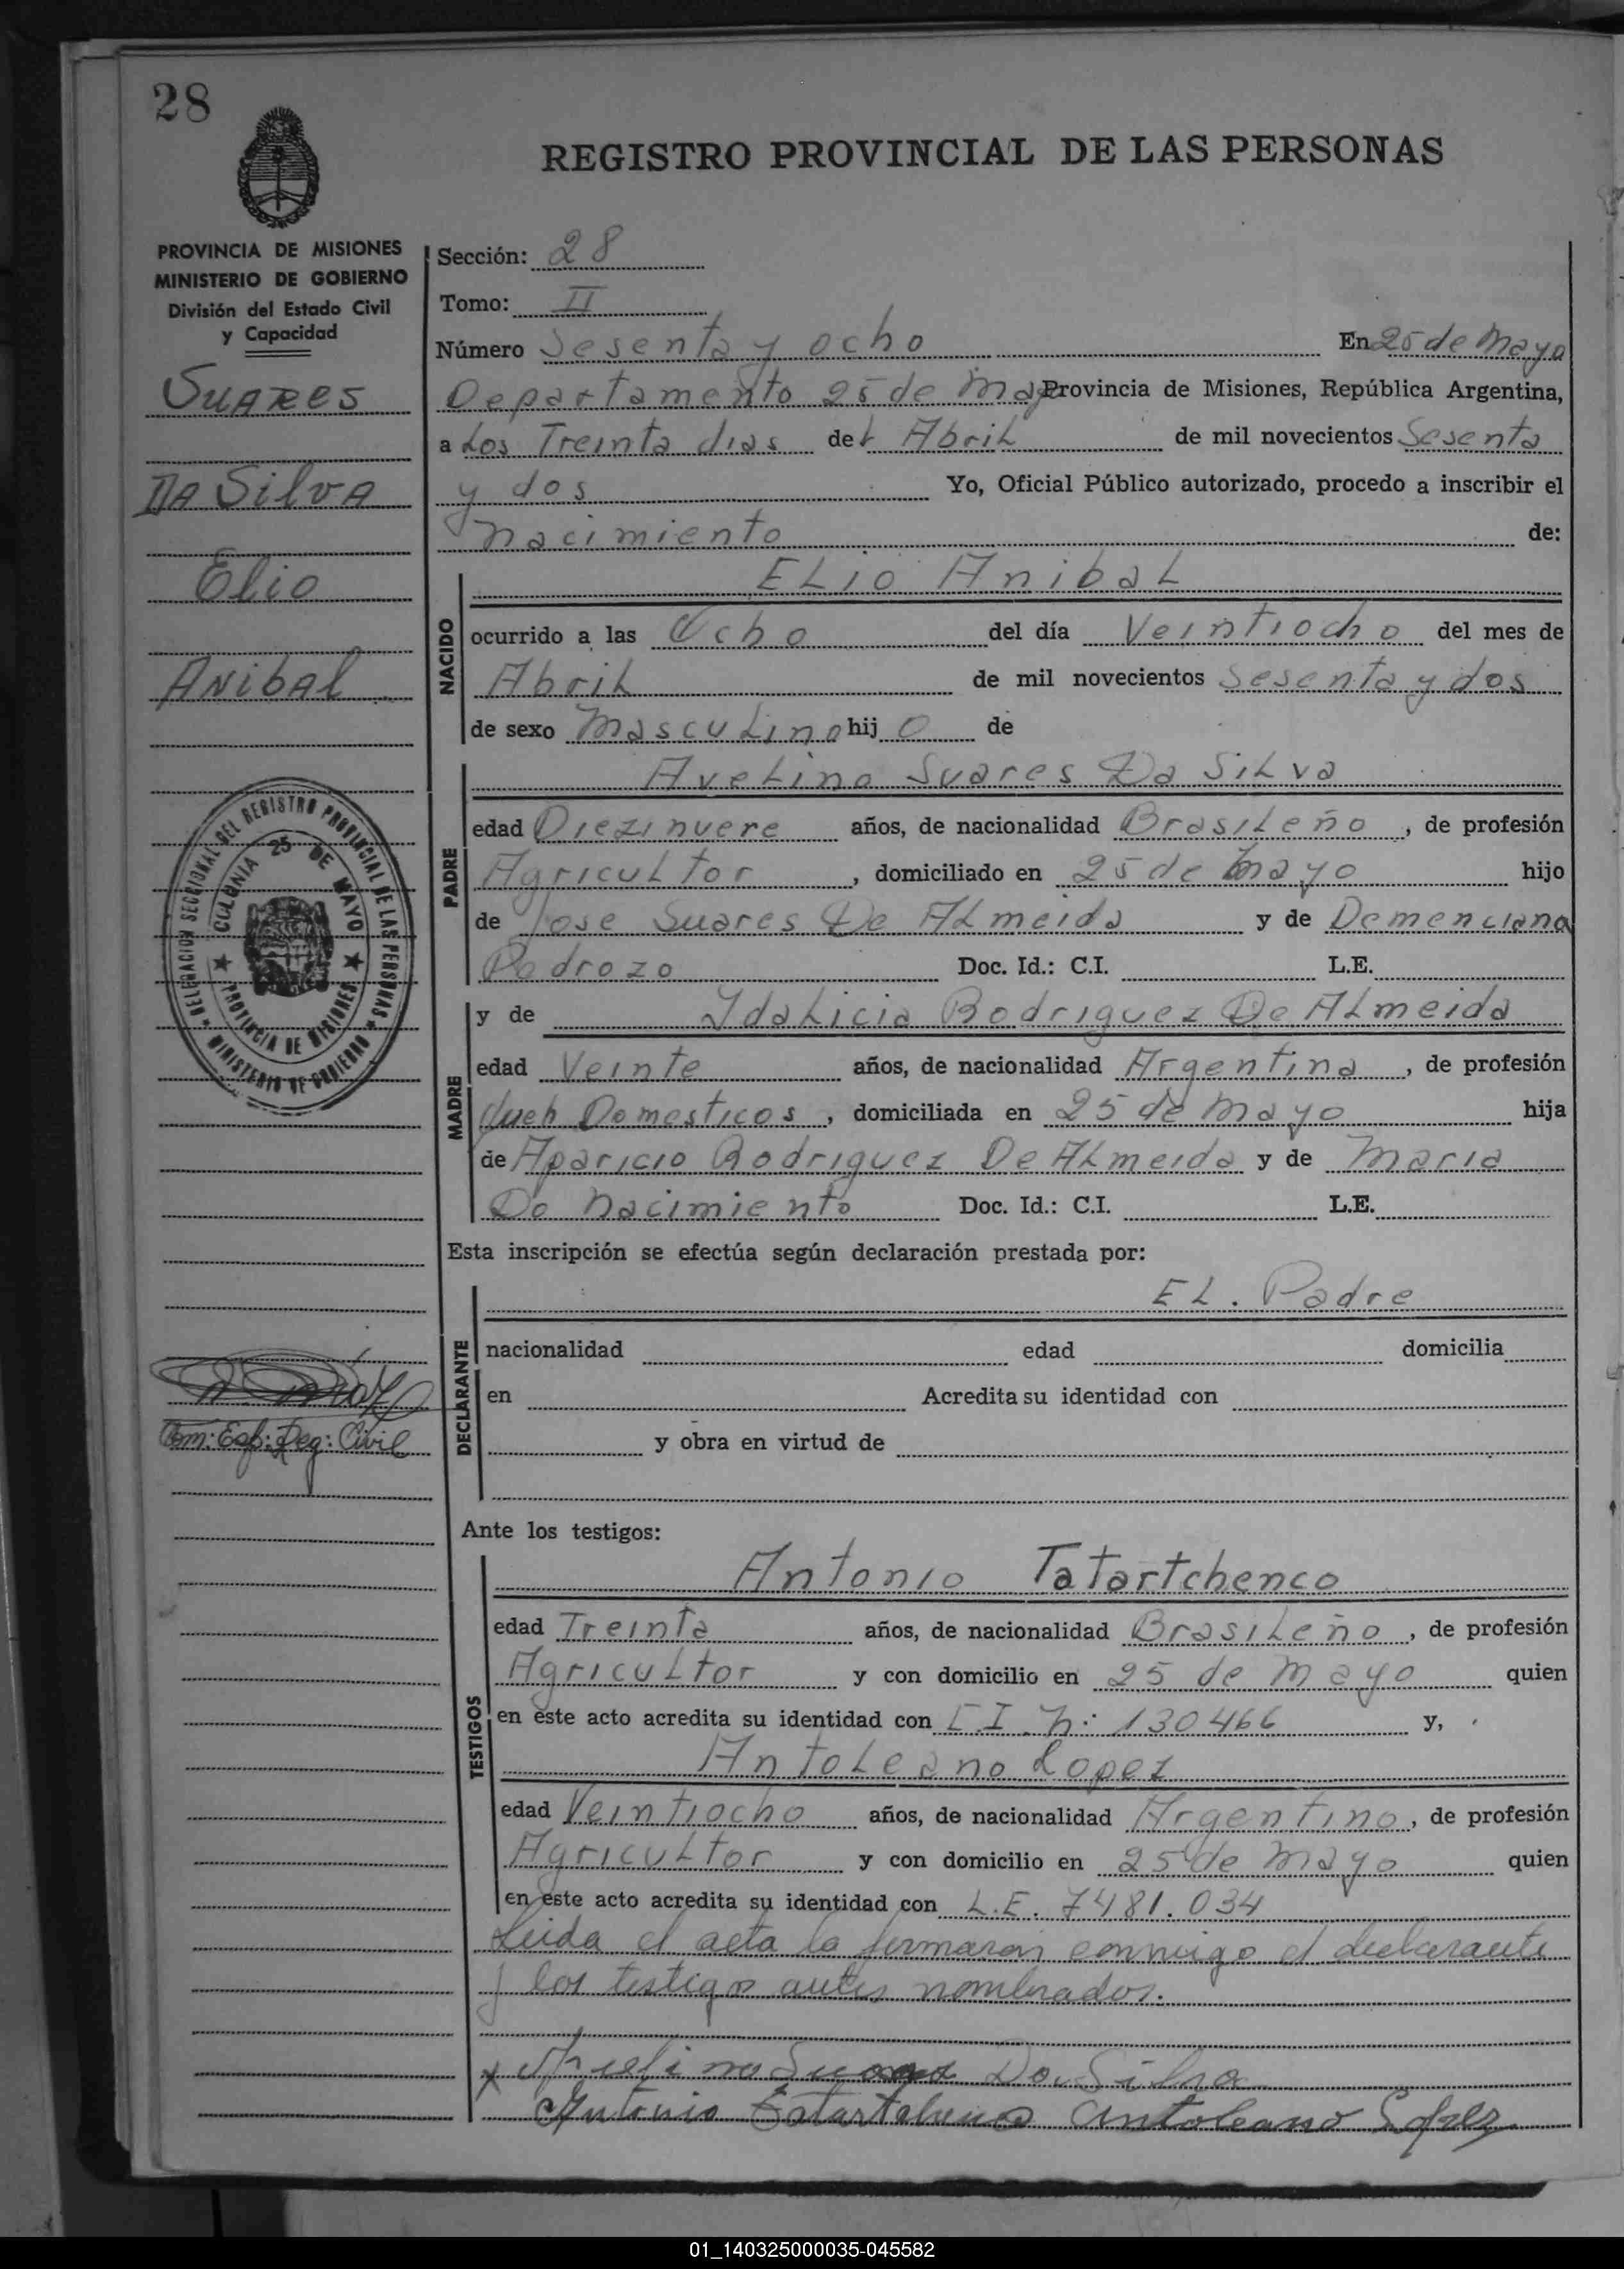 28
REGISTRO PROVINCIAL DE LAS PERSONAS
PROVINCIA DE MISIONES
MINISTERIO DE GOBIERNO
División del Estado Civil
y Capacidad
SUARES
DA SilvA
Elio
ANibAl
DELEGACION SECCIONAL DEL REGISTRO PROVINCIAL DE LAS PERSONAS
MINISTERIO DE GOBIERNO
COLONIA 25 DE MAYO
PROVINCIA DE MISIONES
Com: Esp: Reg: Civil
Sección: 28
Tomo: II
Número Sesenta y ocho En 25 de Mayo
Departamento 25 de Mayo Provincia de Misiones, República Argentina,
a Los Treinta dias del Abril de mil novecientos Sesenta
y dos Yo, Oficial Público autorizado, procedo a inscribir el
nacimiento de:
NACIDO
ELio Anibal
ocurrido a las Ocho del día Veintiocho del mes de
Abril de mil novecientos Sesenta y dos
de sexo Masculino hijo de
PADRE
Avelino Suares Da Silva
edad Diezinueve años, de nacionalidad Brasileño, de profesión
Agricultor, domiciliado en 25 de Mayo hijo
de Jose Suares De Almeida y de Demenciana
Pedrozo Doc. Id.: C.I. L.E.
MADRE
y de Idalicia Rodriguez De Almeida
edad Veinte años, de nacionalidad Argentina, de profesión
Queh Domesticos, domiciliada en 25 de Mayo hija
de Aparicio Rodriguez De Almeida y de Maria
Do Nacimiento Doc. Id.: C.I. L.E.
Esta inscripción se efectúa según declaración prestada por:
DECLARANTE
EL. Padre
nacionalidad edad domicilia
en Acredita su identidad con
y obra en virtud de
Ante los testigos:
TESTIGOS
Antonio Tatartchenco
edad Treinta años, de nacionalidad Brasileño, de profesión
Agricultor y con domicilio en 25 de Mayo quien
en este acto acredita su identidad con C.I. N: 130466 y,
Antoleano Lopez
edad Veintiocho años, de nacionalidad Argentino, de profesión
Agricultor y con domicilio en 25 de Mayo quien
en este acto acredita su identidad con L.E. 7481.034
Leida el acta la firmaron conmigo el declarante
y los testigos antes nombrados.
x Avelino Suares Da Silva
Antonio Tatartchenco Antoleano Lopez
01_140325000035-045582